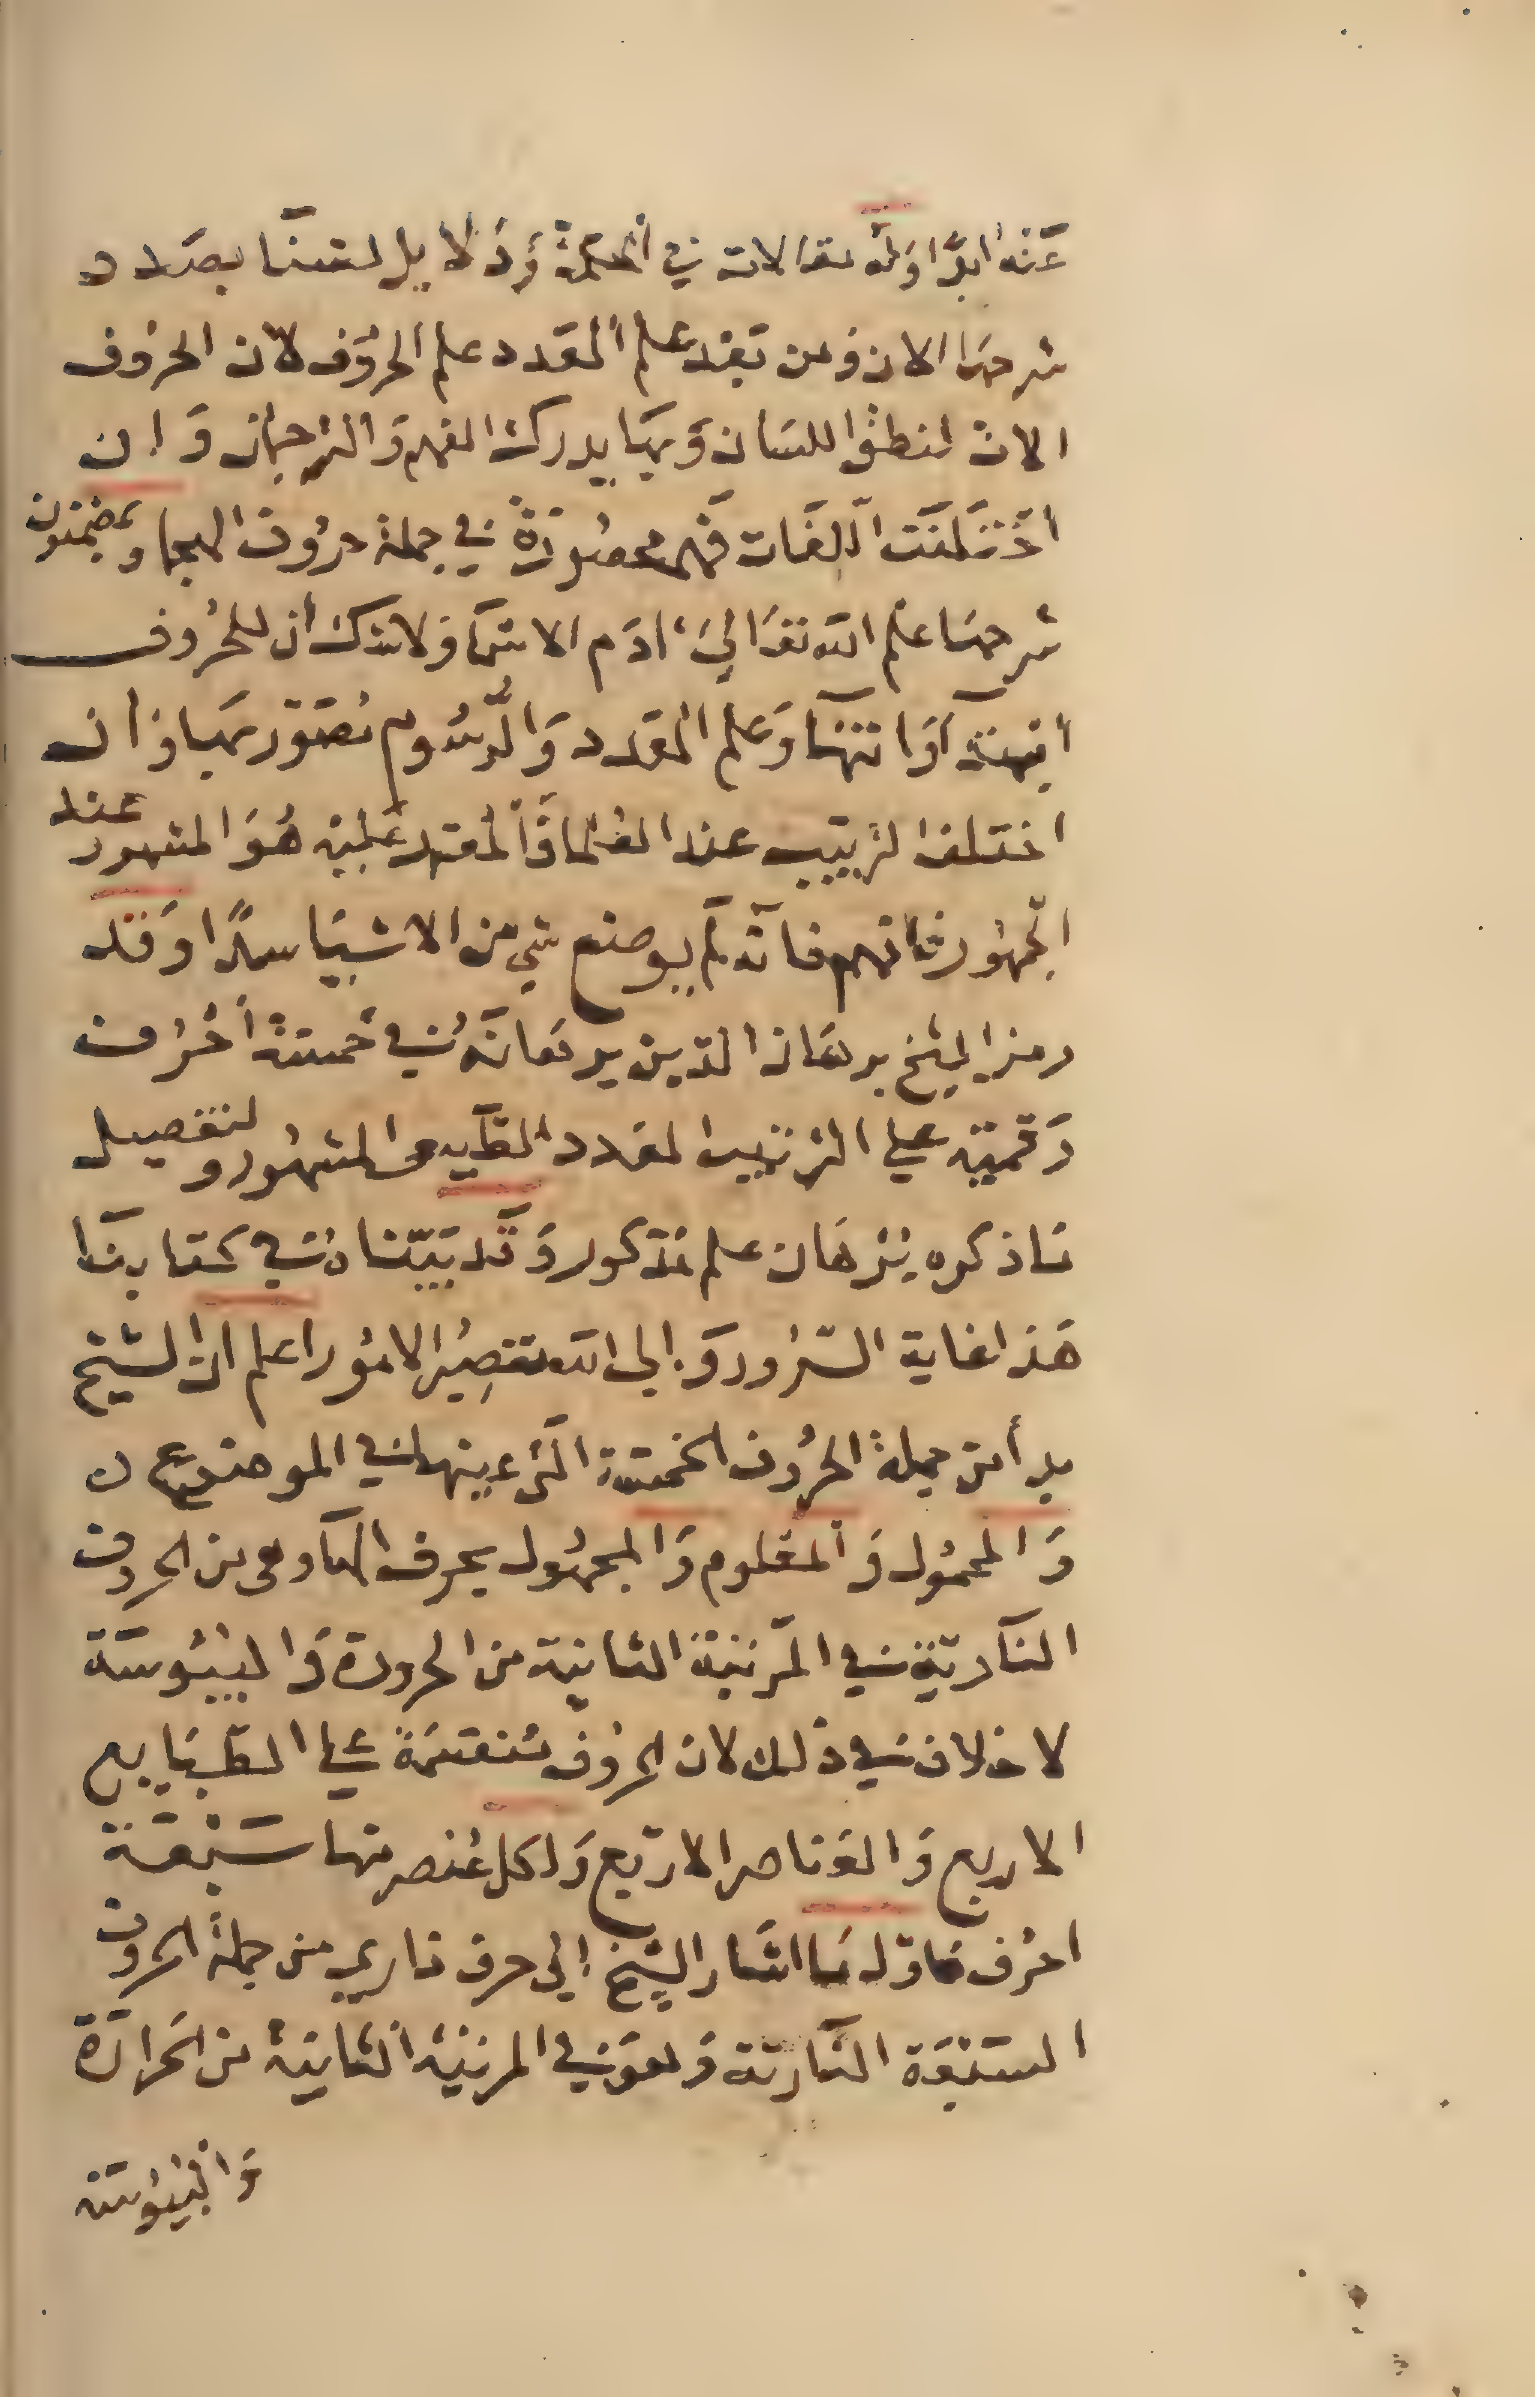 عنه ابدا وله مقالات في الحكمة ودلايل لسنا بصدد
شرحها الان ومن بعد علم العدد علم الحروف لان الحروف
الات لنطق اللسان وبها يدرك الفهم والترجمان وان
اختلفت اللغات فهي محصورة في جملة حروف الهجا ومضمون
شرحها علم الله تعالى ءادم الاسما ولا شك أن للحروف
ابنية وعلم العدد والرسوم تصور بها وان
اختلف الترتيب عند العلما والمعتمد عليه هو المشهور عند
الجمهور فافهم فانه لم يوضع شي من الاشيا سدًا وقد
رمز الشيخ برهان الدين برهانه في خمسة أحرف
رقمية على الترتيب العدد المشهور وتفصيل
ما ذكره برهان علم مذكور وقد بيناه في كتابنا
هذا غاية السرور وإلى الله تصير الامور اعلم ان الشيخ
بدأ من جملة الحروف الخمسة التي عينها في الموضوع
والمحمول والمعلوم والمجهول بحرف الها وهي من الحروف
النارية في المرتبة الثانية من الحرورة واليبوسة
لا خلاف في ذلك لان الحروف منقسمة على الطبايع
الاربع والعناصر الاربع ولكل عنصر منها سبعة
احرف فاول ما اشار الشيخ إلى حرف ناري من جملة الحروف
السبعة النارية وهو في المرتبة الثانية من الحرارة
واليبوسة